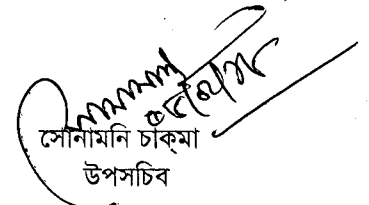 সোনামনি চাক্‌মা
উপসচিব